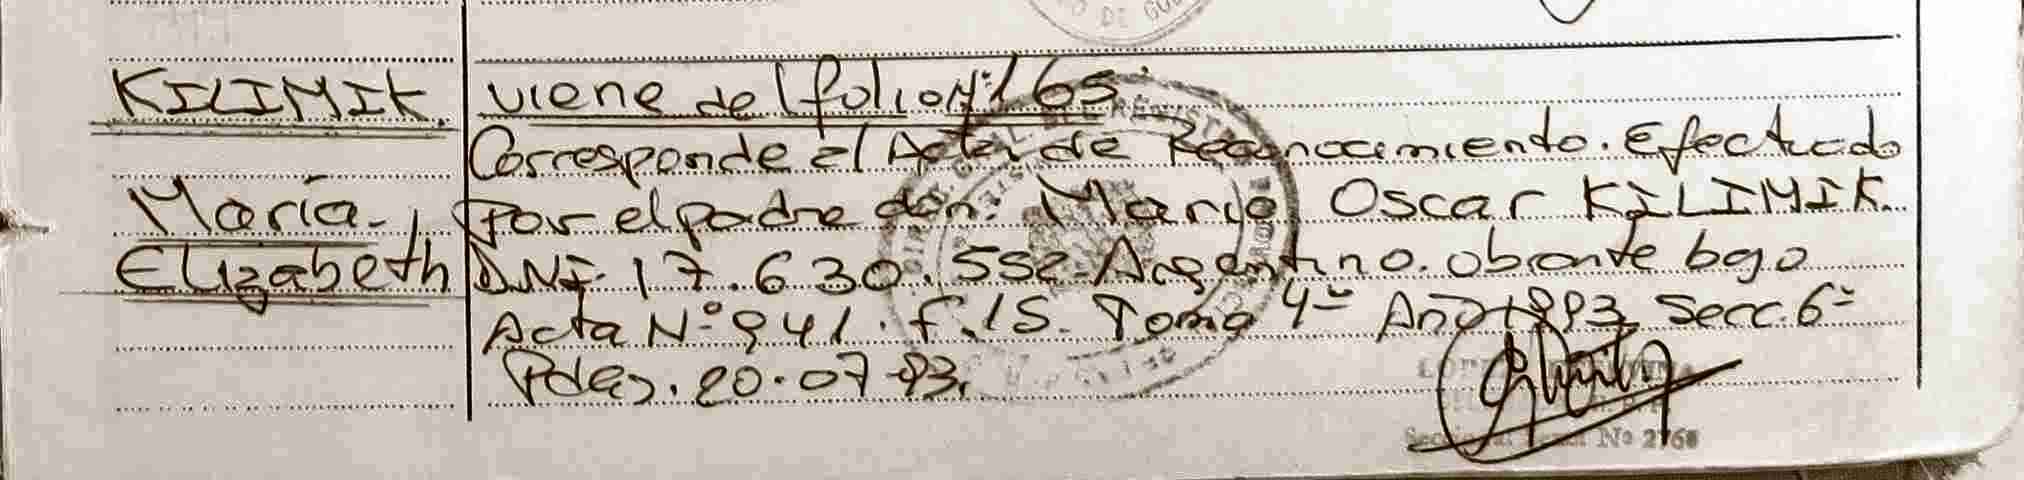 DE GOB
KILIMIK. viene del folio Nº 165.
Corresponde al Acta de Reconocimiento. Efectuado
María por el padre don: Mario Oscar KILIMIK.
Elizabeth DNI. 17.630.552. Argentino. obrante bajo
Acta Nº 941. f. 15. Tomo 4º Año 1993. Secc. 6º
Pdas. 20-07-93.
Nº 2768